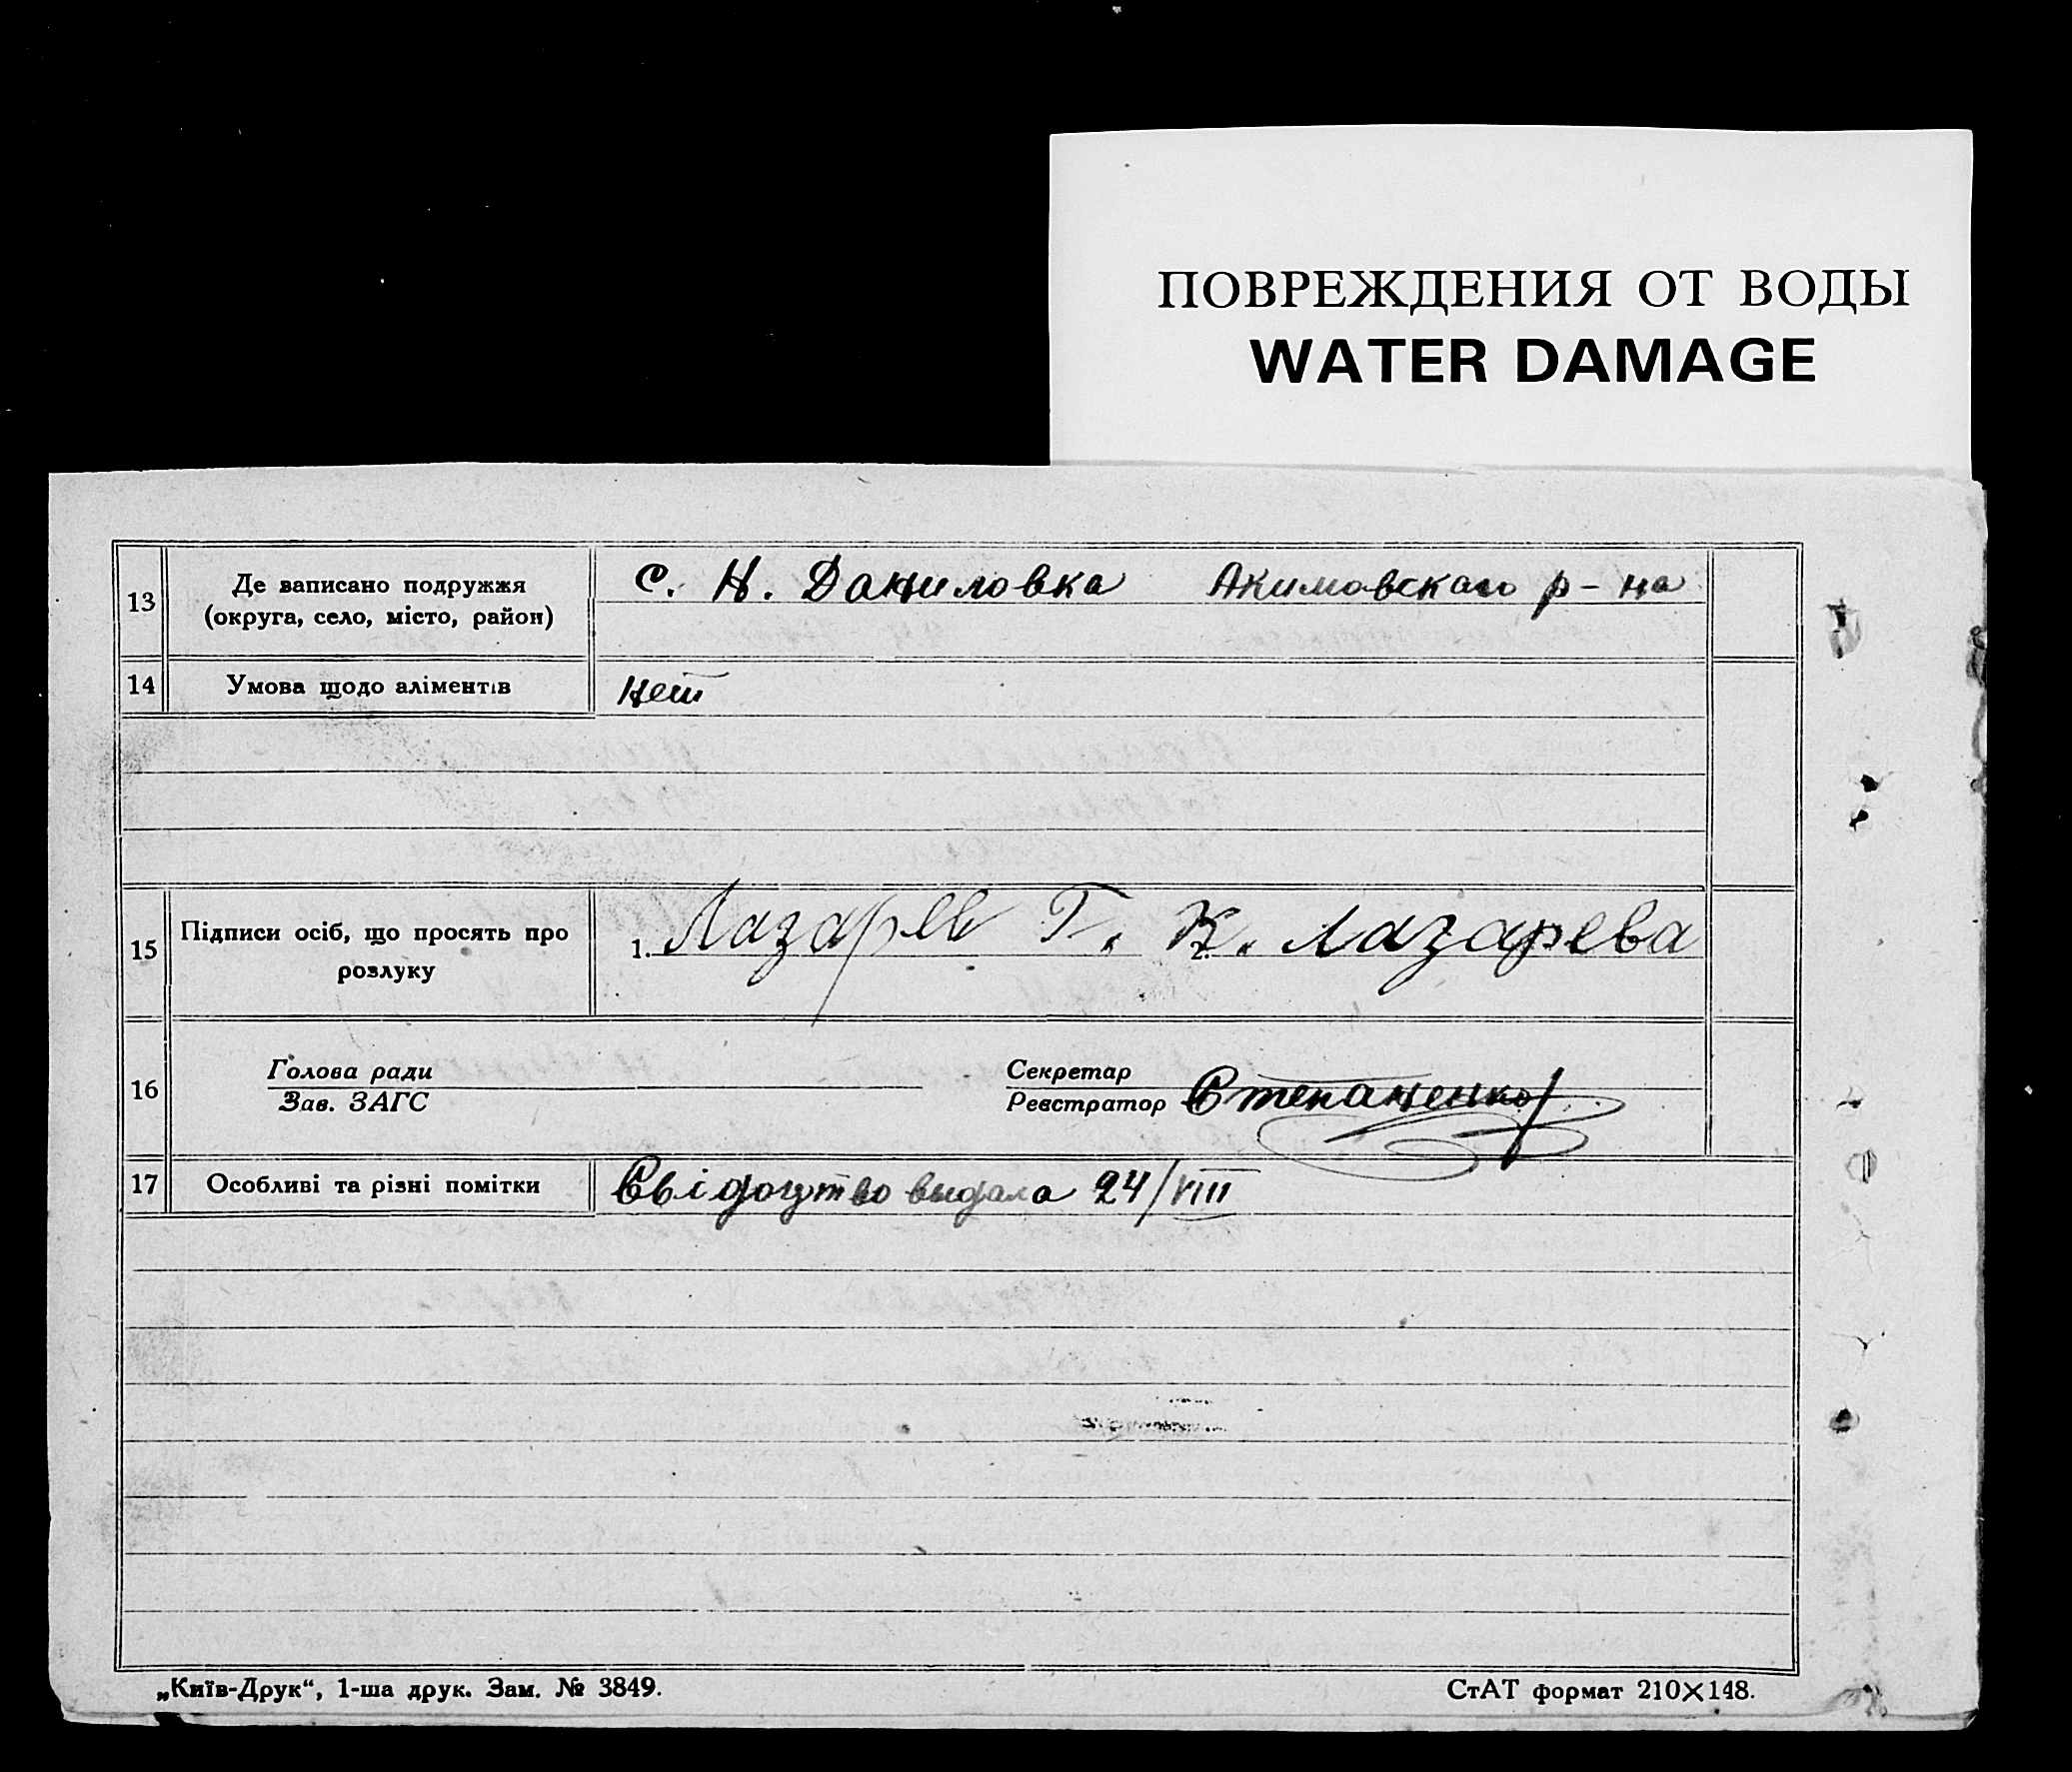 ПОВРЕЖДЕНИЯ ОТ ВОДЫ
WATER DAMAGE
13 Де записано подружжя (округа, село, місто, район) С. Н. Даниловка Акимовского р-на
14 Умова щодо аліментів нет
15 Підписи осіб, що просять про розлуку 1. Лазарев Г. 2. К. Лазарева
16 Голова ради Секретар
Зав. ЗАГС Реєстратор Степаненко
17 Особливі та різні помітки Свідоцтво выдала 24/VIII
„Київ-Друк“, 1-ша друк. Зам. № 3849. СтАТ формат 210×148.